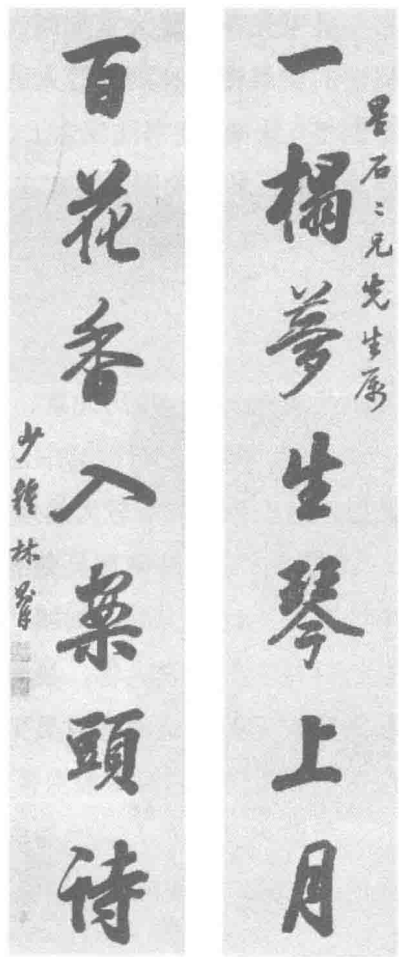 石二兄先生属
一榻夢生琴上月
百花香入案頭詩
少穆林則徐